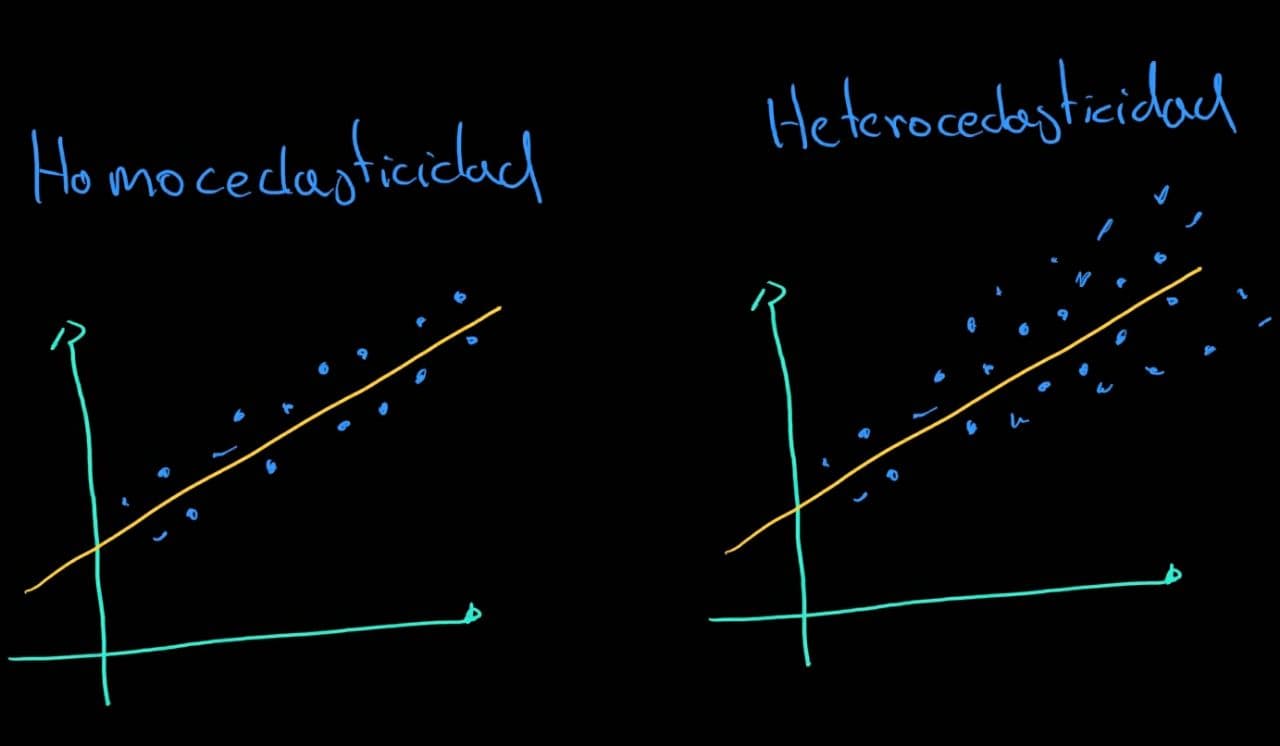 Homocedasticidad
Heterocedasticidad